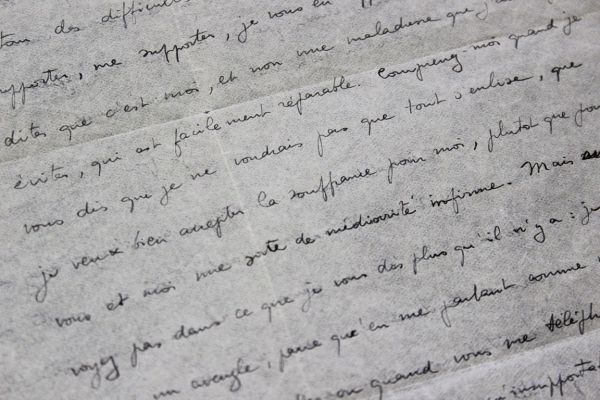 des difficultés
supporter, me supporter, je vous en
dites que c'est moi, et non une maladresse que j'
évites, qui est facilement réparable. Comprenez-moi quand je
vous dis que je ne voudrais pas que tout s'enlise, que
je veux bien accepter la souffrance pour moi, plutôt que pour
vous et moi une sorte de médiocrité infirme. Mais
voyez pas dans ce que je vous dis plus qu'il n'y a : je
un aveugle, parce qu'en me parlant comme
ou quand vous me téléph
insupportab